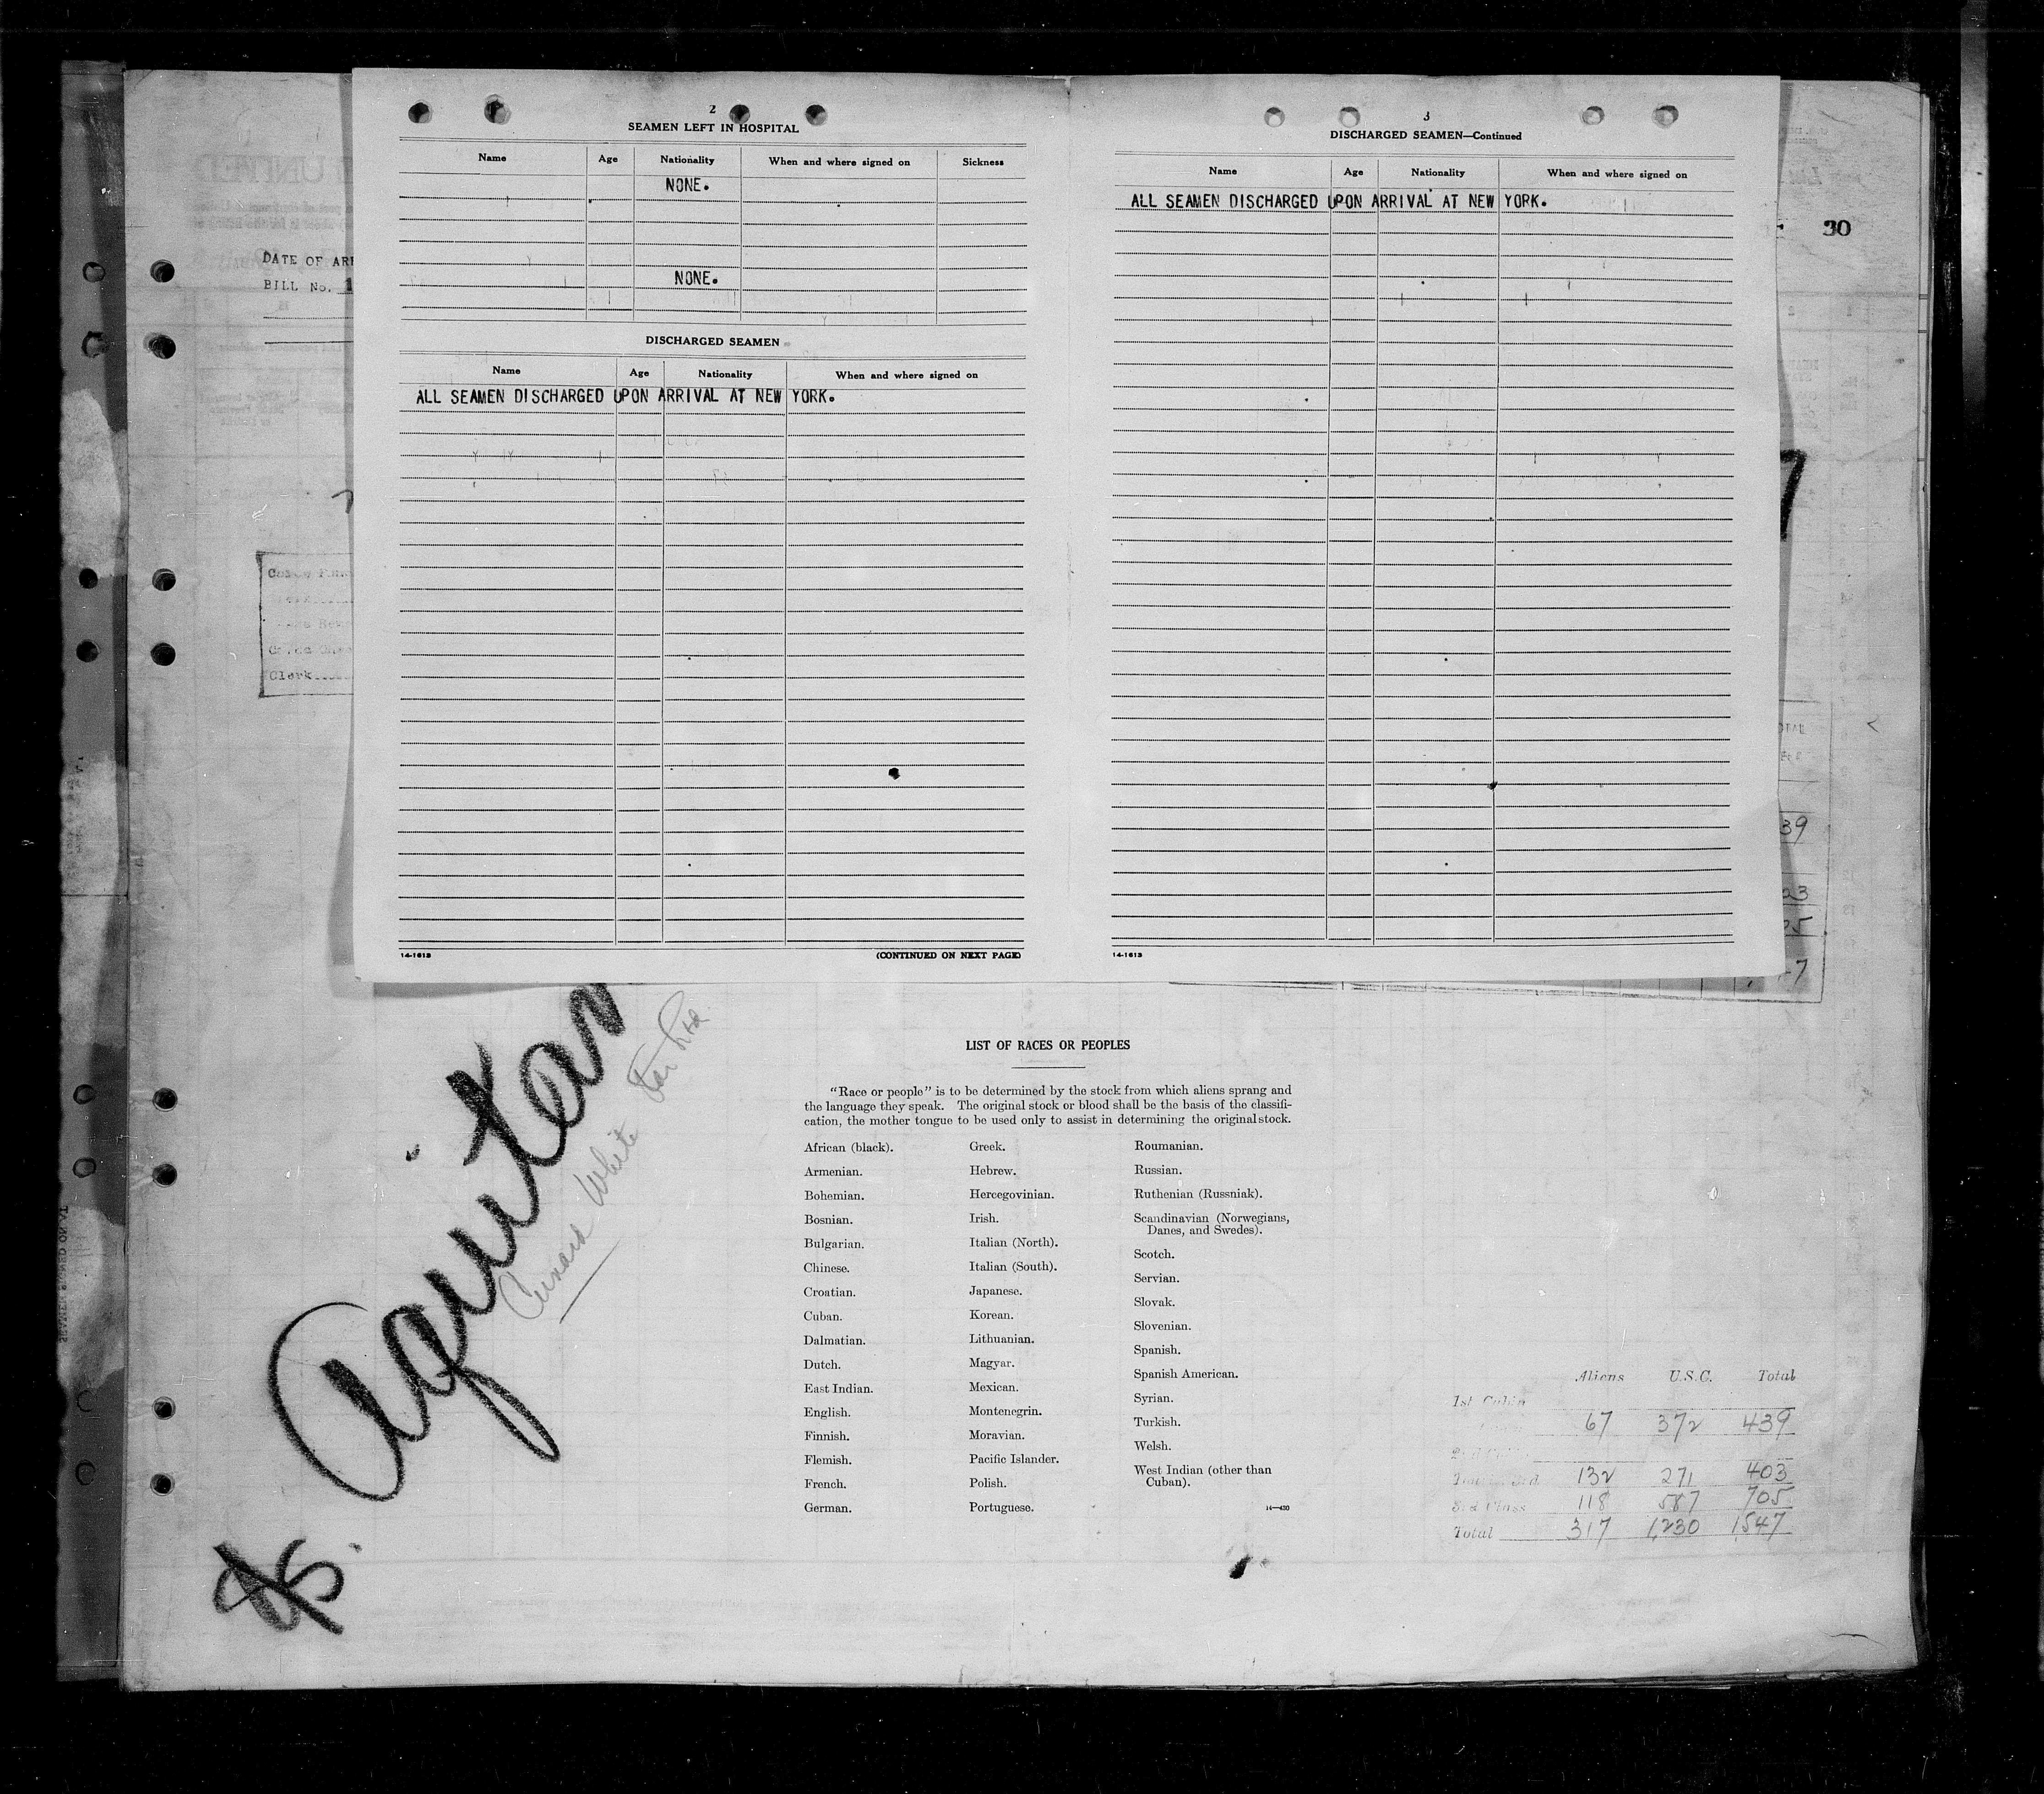 2
SEAMEN LEFT IN HOSPITAL
Name Age Nationality When and where signed on Sickness
NONE.
NONE.
DISCHARGED SEAMEN
Name Age Nationality When and where signed on
ALL SEAMEN DISCHARGED UPON ARRIVAL AT NEW YORK.
14-1613 (CONTINUED ON NEXT PAGE)
3
DISCHARGED SEAMEN—Continued
Name Age Nationality When and where signed on
ALL SEAMEN DISCHARGED UPON ARRIVAL AT NEW YORK.
14-1613
30
DATE OF ARI
BILL No. 1
Clerk
39
23
Aquitan
Cunard White Star Line
LIST OF RACES OR PEOPLES
"Race or people" is to be determined by the stock from which aliens sprang and
the language they speak. The original stock or blood shall be the basis of the classifi-
cation, the mother tongue to be used only to assist in determining the original stock.
African (black).
Armenian.
Bohemian.
Bosnian.
Bulgarian.
Chinese.
Croatian.
Cuban.
Dalmatian.
Dutch.
East Indian.
English.
Finnish.
Flemish.
French.
German.
Greek.
Hebrew.
Hercegovinian.
Irish.
Italian (North).
Italian (South).
Japanese.
Korean.
Lithuanian.
Magyar.
Mexican.
Montenegrin.
Moravian.
Pacific Islander.
Polish.
Portuguese.
Roumanian.
Russian.
Ruthenian (Russniak).
Scandinavian (Norwegians,
Danes, and Swedes).
Scotch.
Servian.
Slovak.
Slovenian.
Spanish.
Spanish American.
Syrian.
Turkish.
Welsh.
West Indian (other than
Cuban).
14—430
Aliens U.S.C. Total
1st Cabin
67 372 439
132 271 403
3rd Class 118 587 705
Total 317 1,230 1547